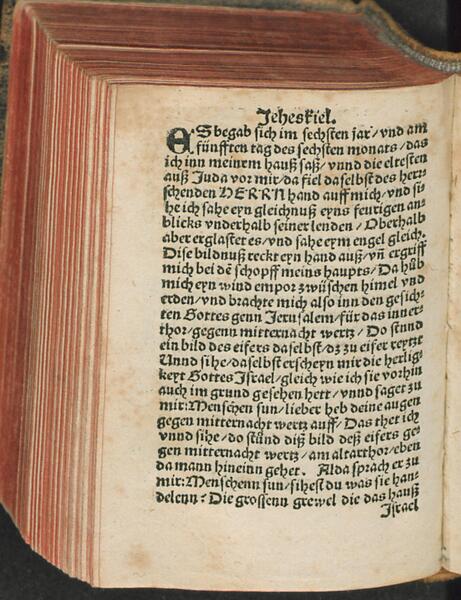 Jeheskiel.
ES begab sich im sechsten jar/vnd am
fünfften tag des sechsten monats/das
ich inn meinem hauß saß/vnnd die eltesten
auß Juda vor mir/da fiel daselbst des herr-
schenden HERRN hand auff mich/vnd si-
he ich sahe eyn gleichnuß eyns feurigen an-
blicks vnderhalb seiner lenden/Oberhalb
aber erglastet es/vnd sahe eym engel gleich.
Dise bildnuß reckt eyn hand auß/vñ ergriff
mich bei dē schopff meins haupts/Da hůb
mich eyn wind empor zwüschen himel vnd
erden/vnd brachte mich also inn den gesich-
ten Gottes genn Jerusalem/für das inner-
thor/gegenn mitternacht wertz/Do stund
ein bild des eifers daselbst/dz zů eifer reytzt
Vnnd sihe/daselbst erscheyn mir die herlig-
keyt Gottes Israel/gleich wie ich sie vorhin
auch im grund gesehen hett/vnnd saget zů
mir:Menschen sun/lieber heb deine augen
gegen mitternacht wertz auff/Das thet ich
vnnd sihe/do stůnd diß bild deß eifers ge-
gen mitternacht wertz/am altarthor/eben
da mann hineinn gehet. Alda sprach er zů
mir:Menschenn sun/sihest du was sie han-
delenn? Die grossenn grewel die das hauß
Israel